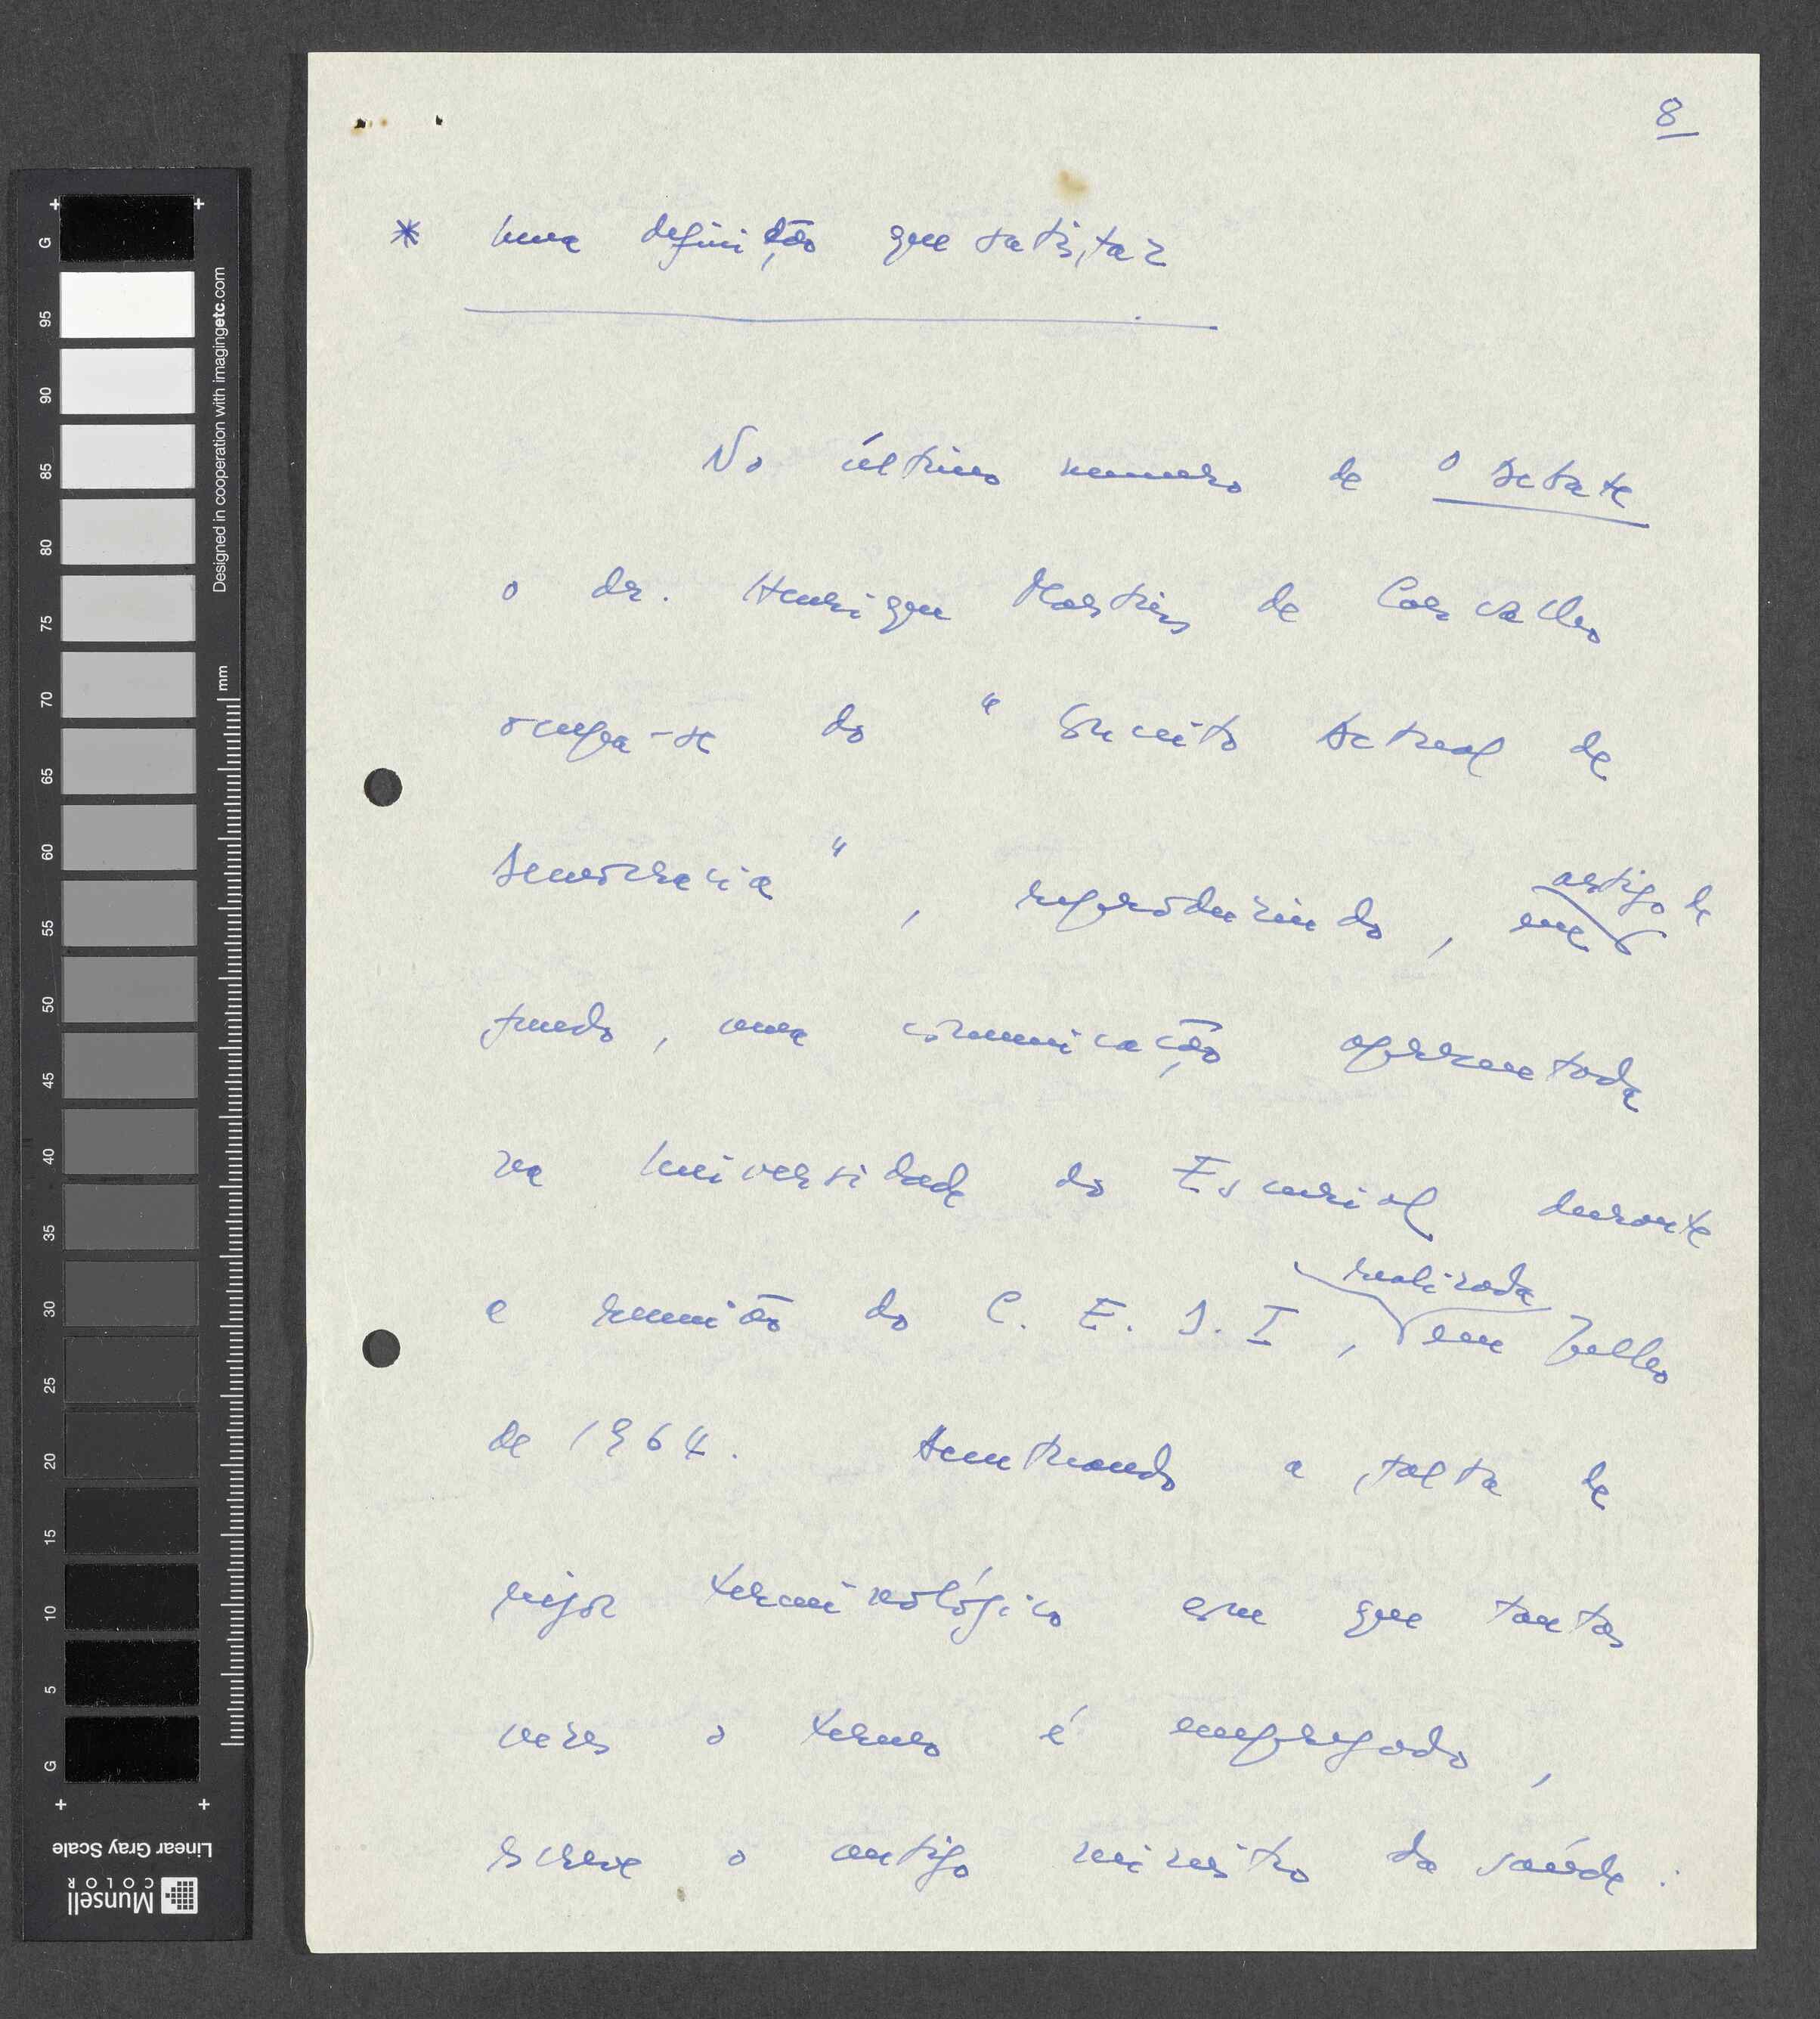 8
* Uma definição que satisfaz
No último numero de O Debate
o dr. Henrique Martins de Carvalho
ocupa-se do "Conceito Actual de
Democracia", reproduzindo, em artigo de
fundo, uma comunicação apresentada
na Universidade do Escurial durante
a reunião do C. E. D. I, realizada em Julho
de 1964. Acentuando a falta de
rigor terminológico com que tantas
vezes o termo é empregado,
escreve o antigo ministro da saúde:
G
95
90
85
80
75
70
65
60
55
50
45
40
35
30
25
20
15
10
5
G
mm
Designed in cooperation with imagingetc.com
Linear Gray Scale
Munsell
COLOR